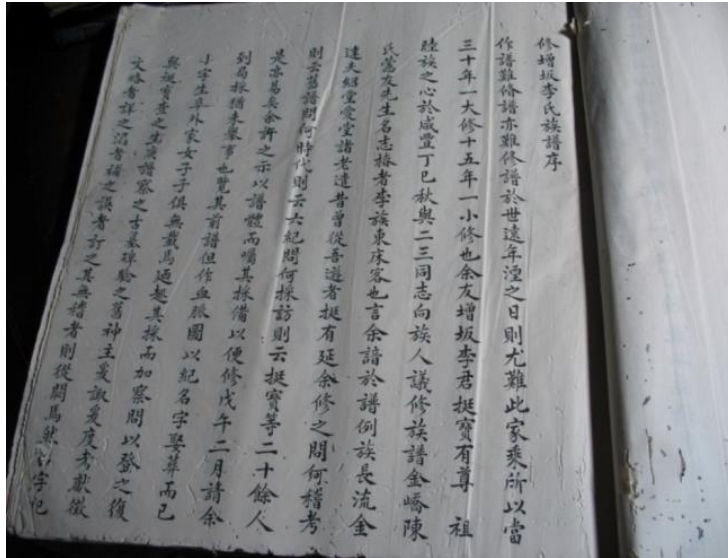 修增坂李氏族譜序
作譜難修譜亦難修譜於世遠年湮之日則尤難此家乘所以當
三十年一大修十五年一小修也余友增坂李君挺寶有尊 祖
睦族之心於咸豐丁巳秋與二三同志向族人議修族譜金嶠陳
氏蒿友先生名志椿者李族東床客也言余諳於譜例族長流金
達夫紹堂愛堂諸老遣昔曾從吾遊者挺有延余修之問何稽考
則云舊譜問何時代則云六紀問何採訪則云挺寶等二十餘人
是亦易矣余許之示以譜體而囑其採備以便修戊午二月請余
到局採猶未舉事也覽其前譜但作血脈圖以紀名字娶葬而已
小字生卒外家女子子俱無載焉迺趣其採而加察問以登之復
與挺寶查之生庚譜察之古墓碑驗之舊神主爰諏爰度考獻徵
文略者詳之漏者補之誤者訂之其無稽者則從闕焉